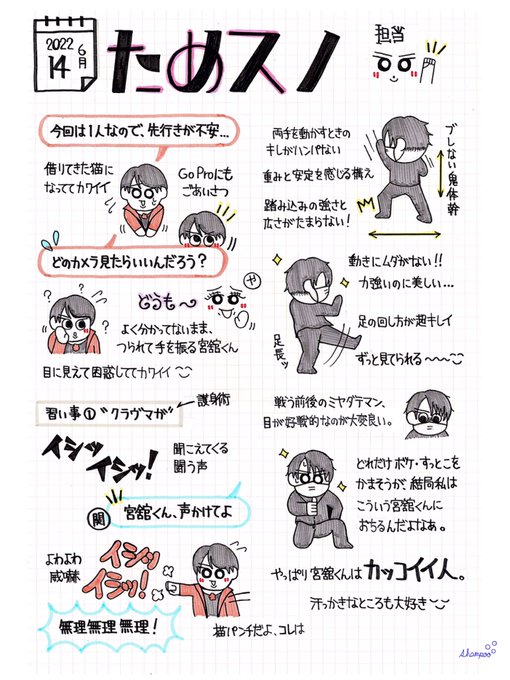 2022
6月
14
ためスノ
担当
今回は1人なので、先行きが不安…
借りてきた猫に
なっててカワイイ
Go Proにも
ごあいさつ
どのカメラ見たらいいんだろう？
どうも〜
や
よく分かってないまま、
つられて手を振る宮舘くん
目に見えて困惑しててカワイイ
習い事① "クラヴマガ"
護身術
イシッ
イシッ！
聞こえてくる
闘う声
関
宮舘くん、声かけてよ
よわよわ
威嚇
イシッ
イシッ！
無理無理無理！
猫パンチだよ、コレは
両手を動かすときの
キレがハンパない
重みと安定を感じる構え
踏み込みの強さと
広さがたまらない！
ブレない鬼体幹
動きにムダがない！！
力強いのに美しい…
足の回し方が超キレイ
足長ッ
ずっと見てられる〜〜〜
戦う前後のミヤダテマン、
目が好戦的なのが大変良い。
どれだけボケ・すっとこを
かまそうが、結局私は
こういう宮舘くんに
おちるんだよなあ。
やっぱり宮舘くんはカッコイイ人。
汗っかきなところも大好き
shampoo